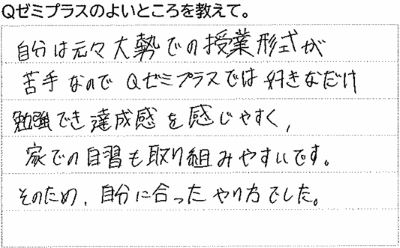 Qゼミプラスのよいところを教えて。
自分は元々大勢での授業形式が
苦手なので Qゼミプラスでは好きなだけ
勉強でき達成感を感じやすく、
家での自習も取り組みやすいです。
そのため、自分に合ったやり方でした。